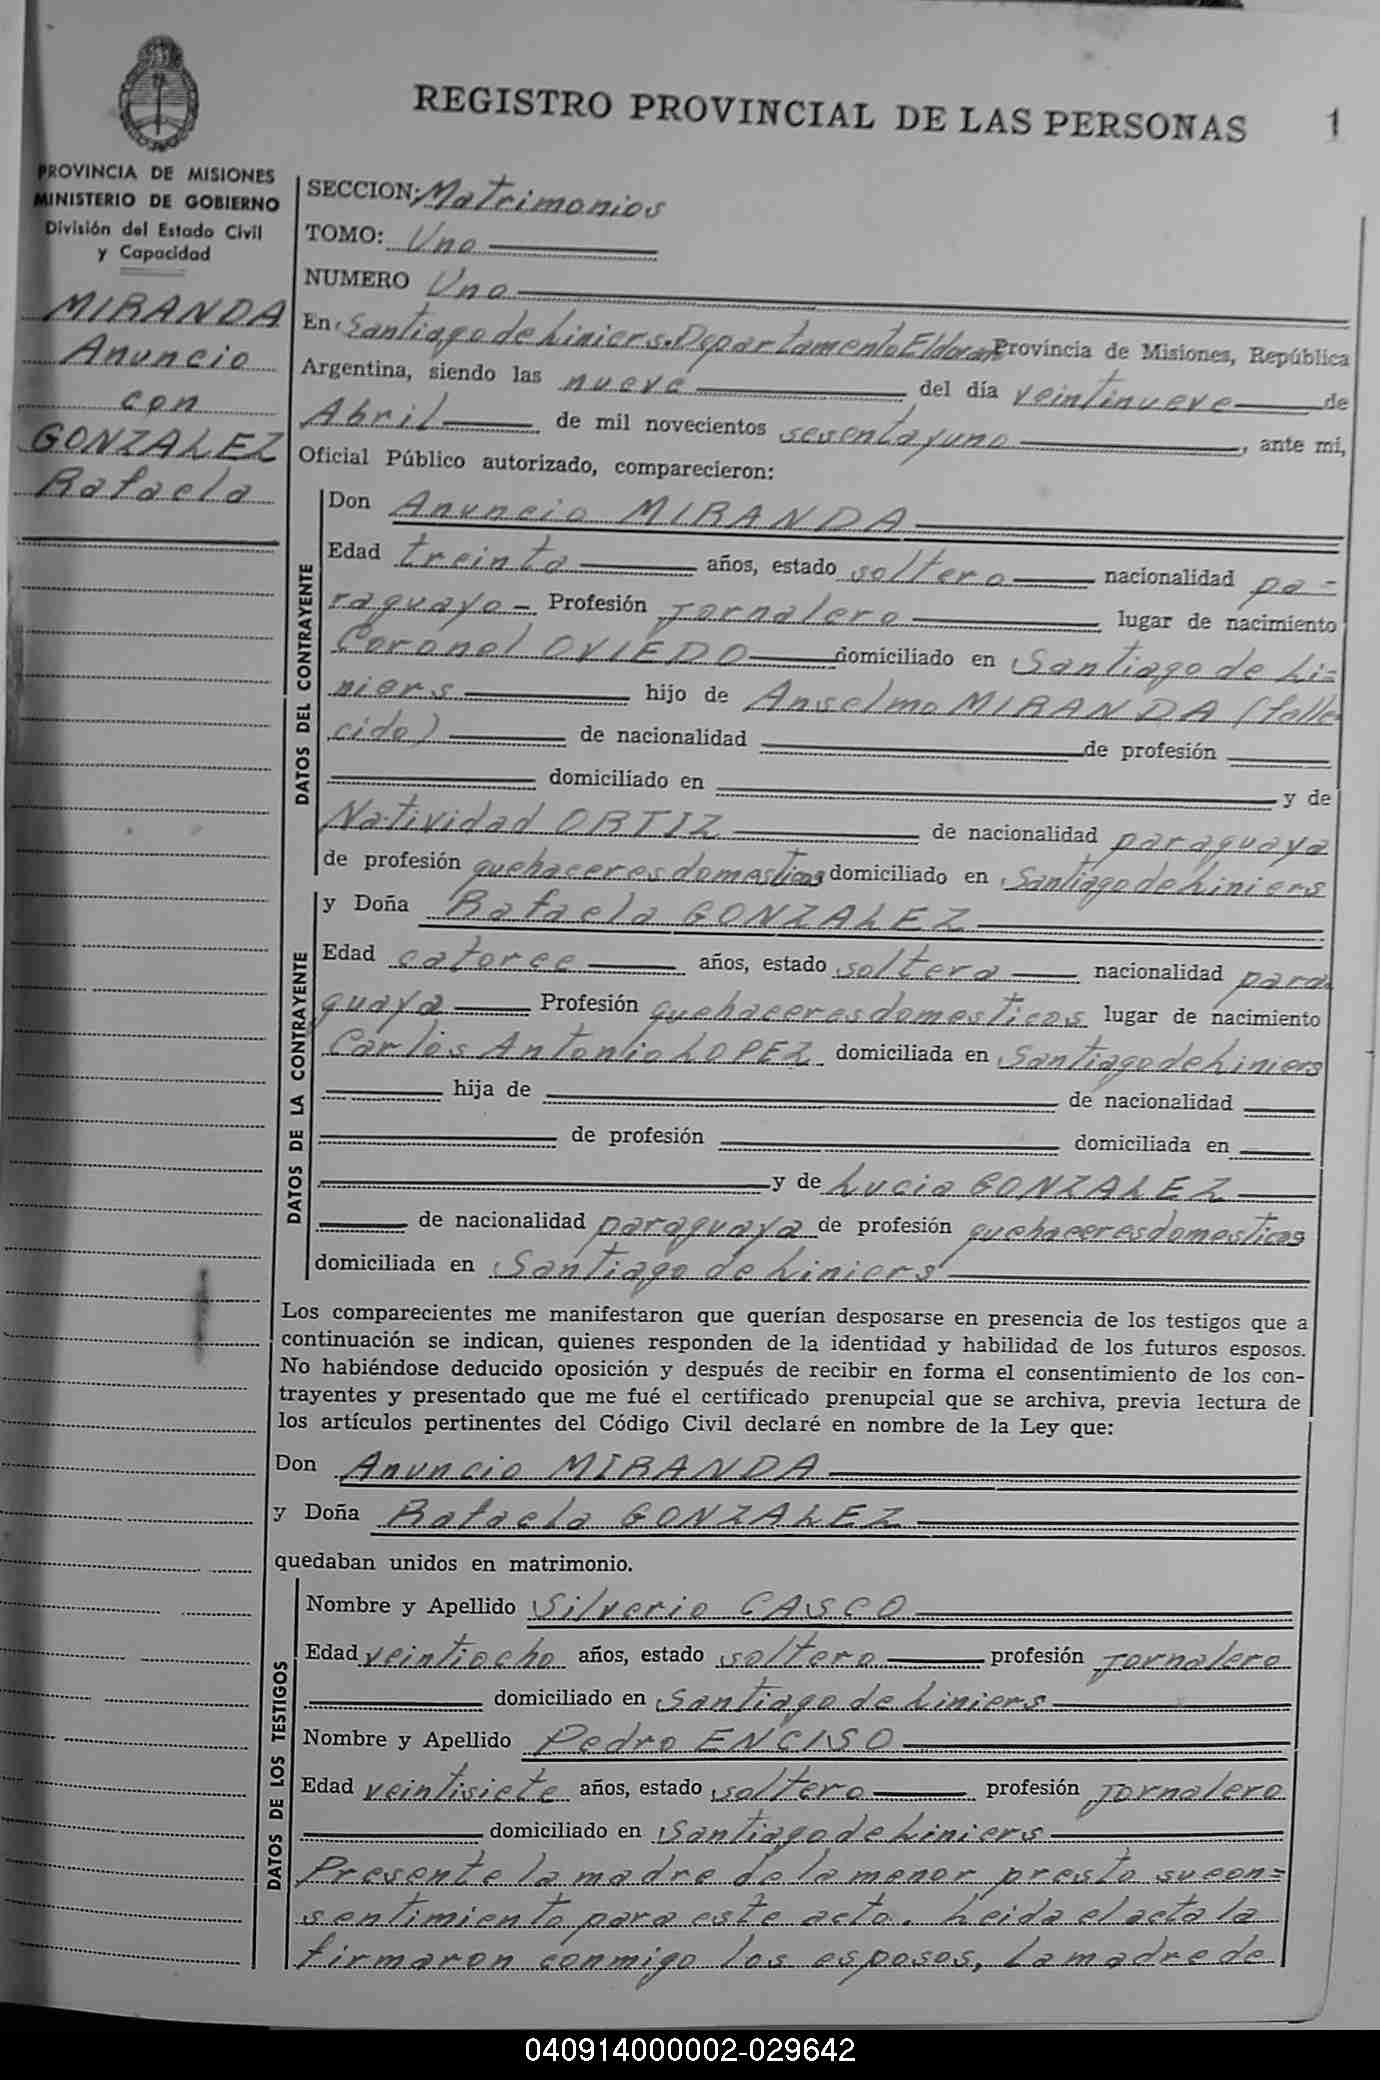 REGISTRO PROVINCIAL DE LAS PERSONAS 1
PROVINCIA DE MISIONES
MINISTERIO DE GOBIERNO
División del Estado Civil
y Capacidad
MIRANDA
Anuncio
con
GONZALEZ
Rafaela
SECCION: Matrimonios
TOMO: Uno
NUMERO Uno
En Santiago de Liniers. Departamento Eldorado Provincia de Misiones, República
Argentina, siendo las nueve del día veintinueve de
Abril de mil novecientos sesenta y uno, ante mí,
Oficial Público autorizado, comparecieron:
DATOS DEL CONTRAYENTE
Don Anuncio MIRANDA
Edad treinta años, estado soltero nacionalidad pa=
raguayo- Profesión Jornalero lugar de nacimiento
Coronel OVIEDO domiciliado en Santiago de Li=
niers hijo de Anselmo MIRANDA (falle
cido) de nacionalidad de profesión
domiciliado en y de
Natividad ORTIZ de nacionalidad paraguaya
de profesión quehaceres domesticos domiciliado en Santiago de Liniers
DATOS DE LA CONTRAYENTE
y Doña Rafaela GONZALEZ
Edad catorce años, estado soltera nacionalidad para
guaya Profesión quehaceres domesticos lugar de nacimiento
Carlos Antonio LOPEZ domiciliada en Santiago de Liniers
hija de de nacionalidad
de profesión domiciliada en
y de Lucia GONZALEZ
de nacionalidad paraguaya de profesión quehaceres domesticos
domiciliada en Santiago de Liniers
Los comparecientes me manifestaron que querían desposarse en presencia de los testigos que a
continuación se indican, quienes responden de la identidad y habilidad de los futuros esposos.
No habiéndose deducido oposición y después de recibir en forma el consentimiento de los con-
trayentes y presentado que me fué el certificado prenupcial que se archiva, previa lectura de
los artículos pertinentes del Código Civil declaré en nombre de la Ley que:
Don Anuncio MIRANDA
y Doña Rafaela GONZALEZ
quedaban unidos en matrimonio.
DATOS DE LOS TESTIGOS
Nombre y Apellido Silverio CASCO
Edad veintiocho años, estado soltero profesión Jornalero
domiciliado en Santiago de Liniers
Nombre y Apellido Pedro ENCISO
Edad veintisiete años, estado soltero profesión Jornalero
domiciliado en Santiago de Liniers
Presente la madre de la menor presto su con=
sentimiento para este acto. Leida el acta la
firmaron conmigo los esposos, la madre de
040914000002-029642